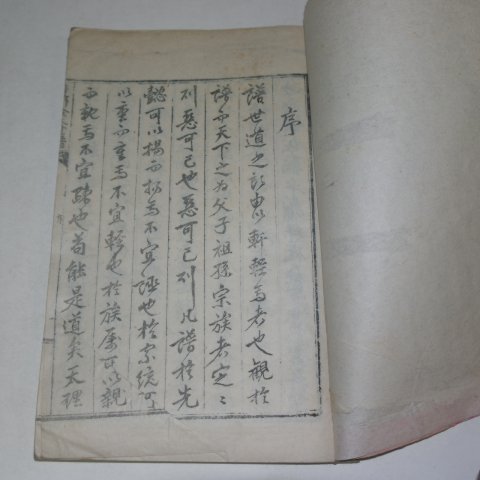 序
譜世道之所由以軒輊焉者也觀於
譜而天下之为父子祖孫宗族者定〻
則惡可已也惡可已則凡譜於先
懿可以揚而揚焉不宜誣也於宗統可
以重而重焉不宜輕也於族屬可以親
而親焉不宜疎也苟能是道矣天理